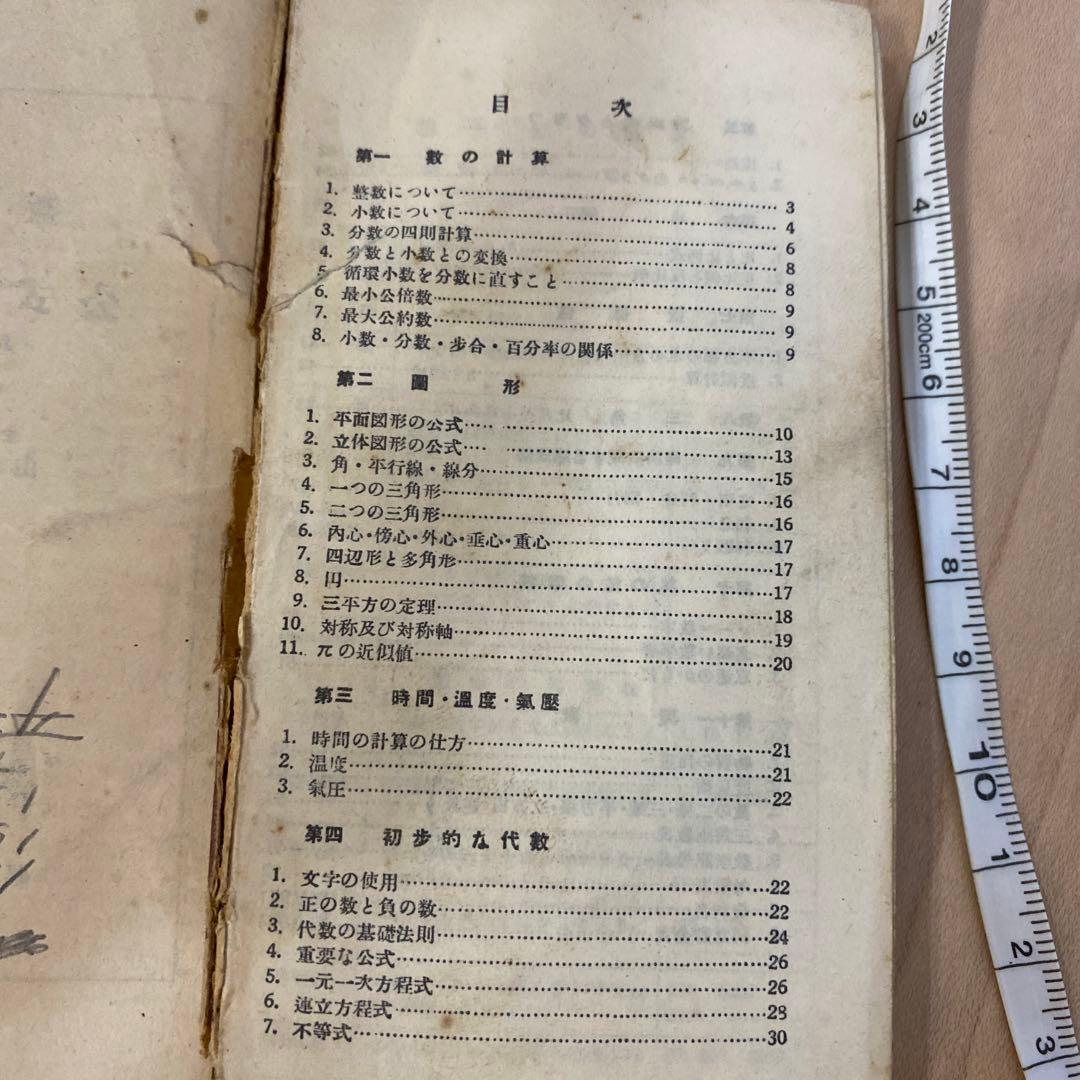 目次
第一 数の計算
1. 整数について……3
2. 小数について……4
3. 分数の四則計算……6
4. 分数と小数との変換……8
5 循環小数を分数に直すこと……8
6. 最小公倍数……9
7. 最大公約数……9
8. 小数・分数・歩合・百分率の関係……9
第二 圖形
1. 平面図形の公式……10
2. 立体図形の公式……13
3. 角・平行線・線分……15
4. 一つの三角形……16
5. 二つの三角形……16
6. 內心・傍心・外心・垂心・重心……17
7. 四辺形と多角形……17
8. 円……17
9. 三平方の定理……18
10. 対称及び対称軸……19
11. πの近似値……20
第三 時間・溫度・氣壓
1. 時間の計算の仕方……21
2. 温度……21
3. 氣圧……22
第四 初歩的な代數
1. 文字の使用……22
2. 正の数と負の数……22
3. 代数の基礎法則……24
4. 重要な公式……26
5. 一元一次方程式……26
6. 連立方程式……28
7. 不等式……30
2
3
4
5
200cm
6
7
8
9
10
1
2
3